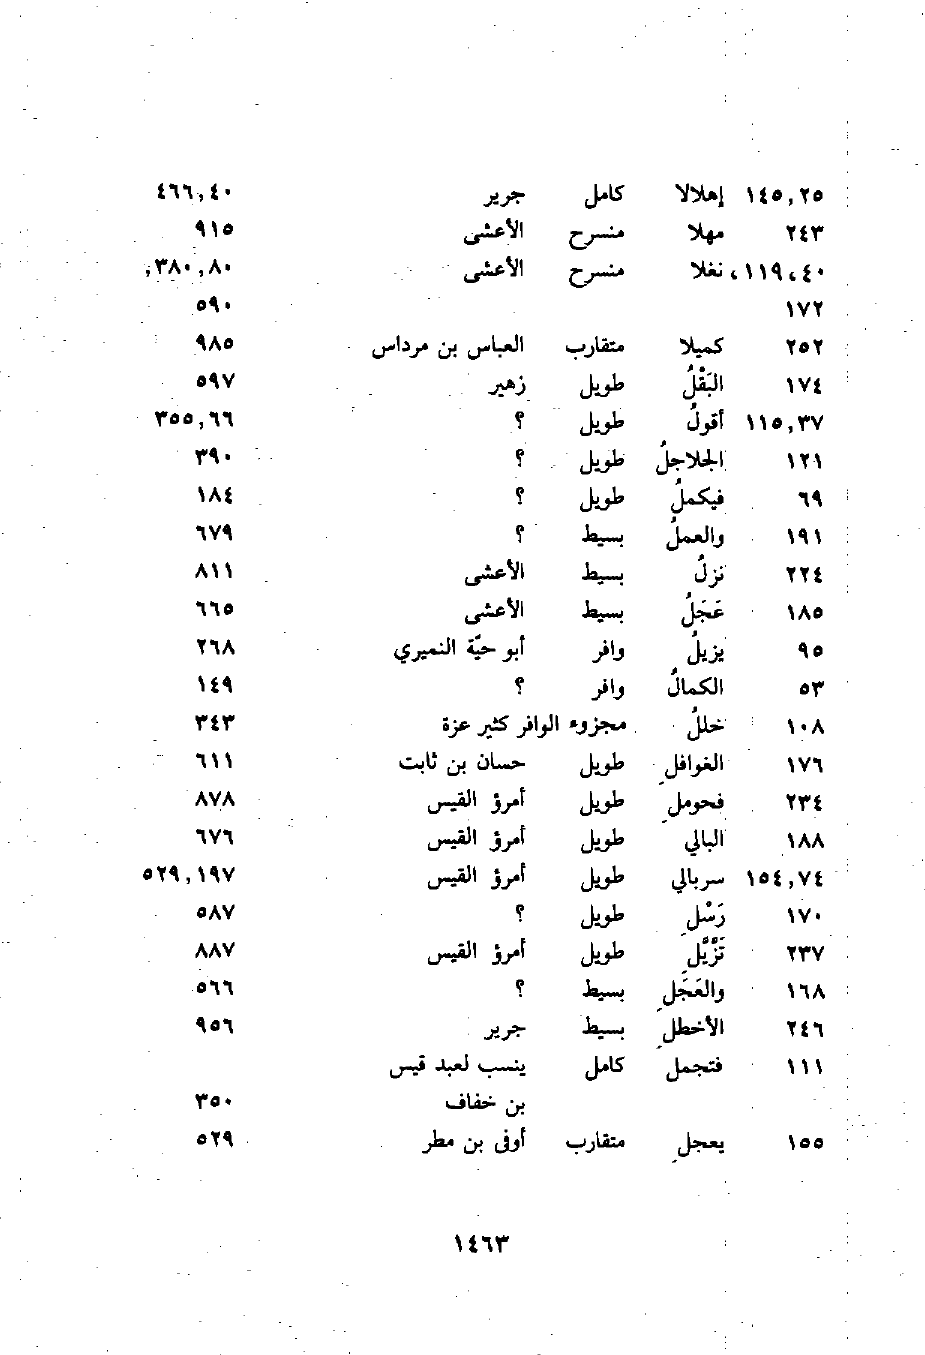 ١٤٥,٢٥ إهلالا كامل جرير ٤٦٦,٤٠
٢٤٣ مهلا منسرح الأعشى ٩١٥
١١٩،٤٠، نغلا منسرح الأعشى ٣٨٠,٨٠,
١٧٢ ٥٩٠
٢٥٢ كميلا متقارب العباس بن مرداس ٩٨٥
١٧٤ البَقْلُ طويل زهير ٥٩٧
١١٥,٣٧ أقولُ طويل ؟ ٣٥٥,٦٦
١٢١ الجلاجلُ طويل ؟ ٣٩٠
٦٩ فيكملُ طويل ؟ ١٨٤
١٩١ والعملُ بسيط ؟ ٦٧٩
٢٢٤ نزلُ بسيط الأعشى ٨١١
١٨٥ عَجَلُ بسيط الأعشى ٦٦٥
٩٥ يزيلُ وافر أبو حيّة النميري ٢٦٨
٥٣ الكمالُ وافر ؟ ١٤٩
١٠٨ خللُ مجزوء الوافر كثير عزة ٣٤٣
١٧٦ الغوافلِ طويل حسان بن ثابت ٦١١
٢٣٤ فحوملِ طويل أمرؤ القيس ٨٧٨
١٨٨ البالي طويل أمرؤ القيس ٦٧٦
١٥٤,٧٤ سربالي طويل أمرؤ القيس ٥٢٩,١٩٧
١٧٠ رَسْلِ طويل ؟ ٥٨٧
٢٣٧ تَزُّيَّلِ طويل أمرؤ القيس ٨٨٧
١٦٨ والعَجَلِ بسيط ؟ ٥٦٦
٢٤٦ الأخطلِ بسيط جرير ٩٥٦
١١١ فتجمل كامل ينسب لعبد قيس
بن خفاف ٣٥٠
١٥٥ يعجلِ متقارب أوفى بن مطر ٥٢٩
١٤٦٣